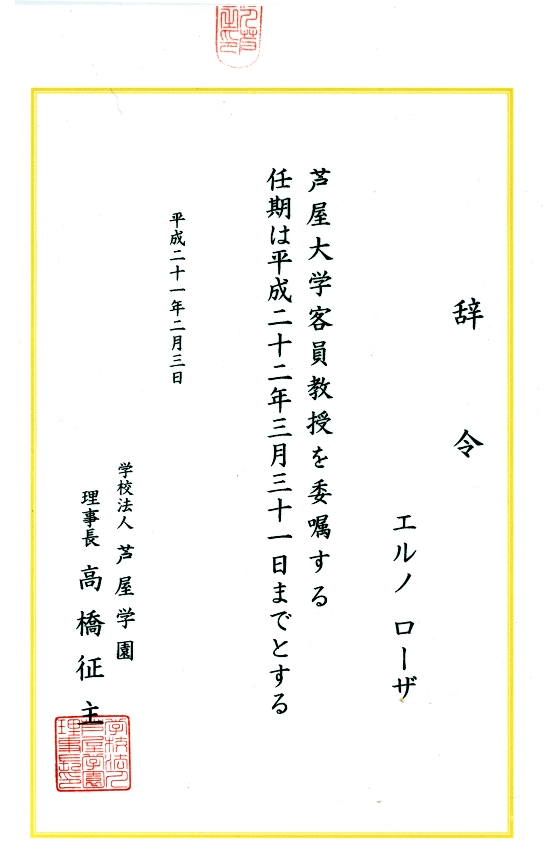 辞令
エルノ ローザ
芦屋大学客員教授を委嘱する
任期は平成二十二年三月三十一日までとする
平成二十一年二月三日
学校法人 芦屋学園
理事長 高橋征主
学校法人
芦屋学園
理事長印